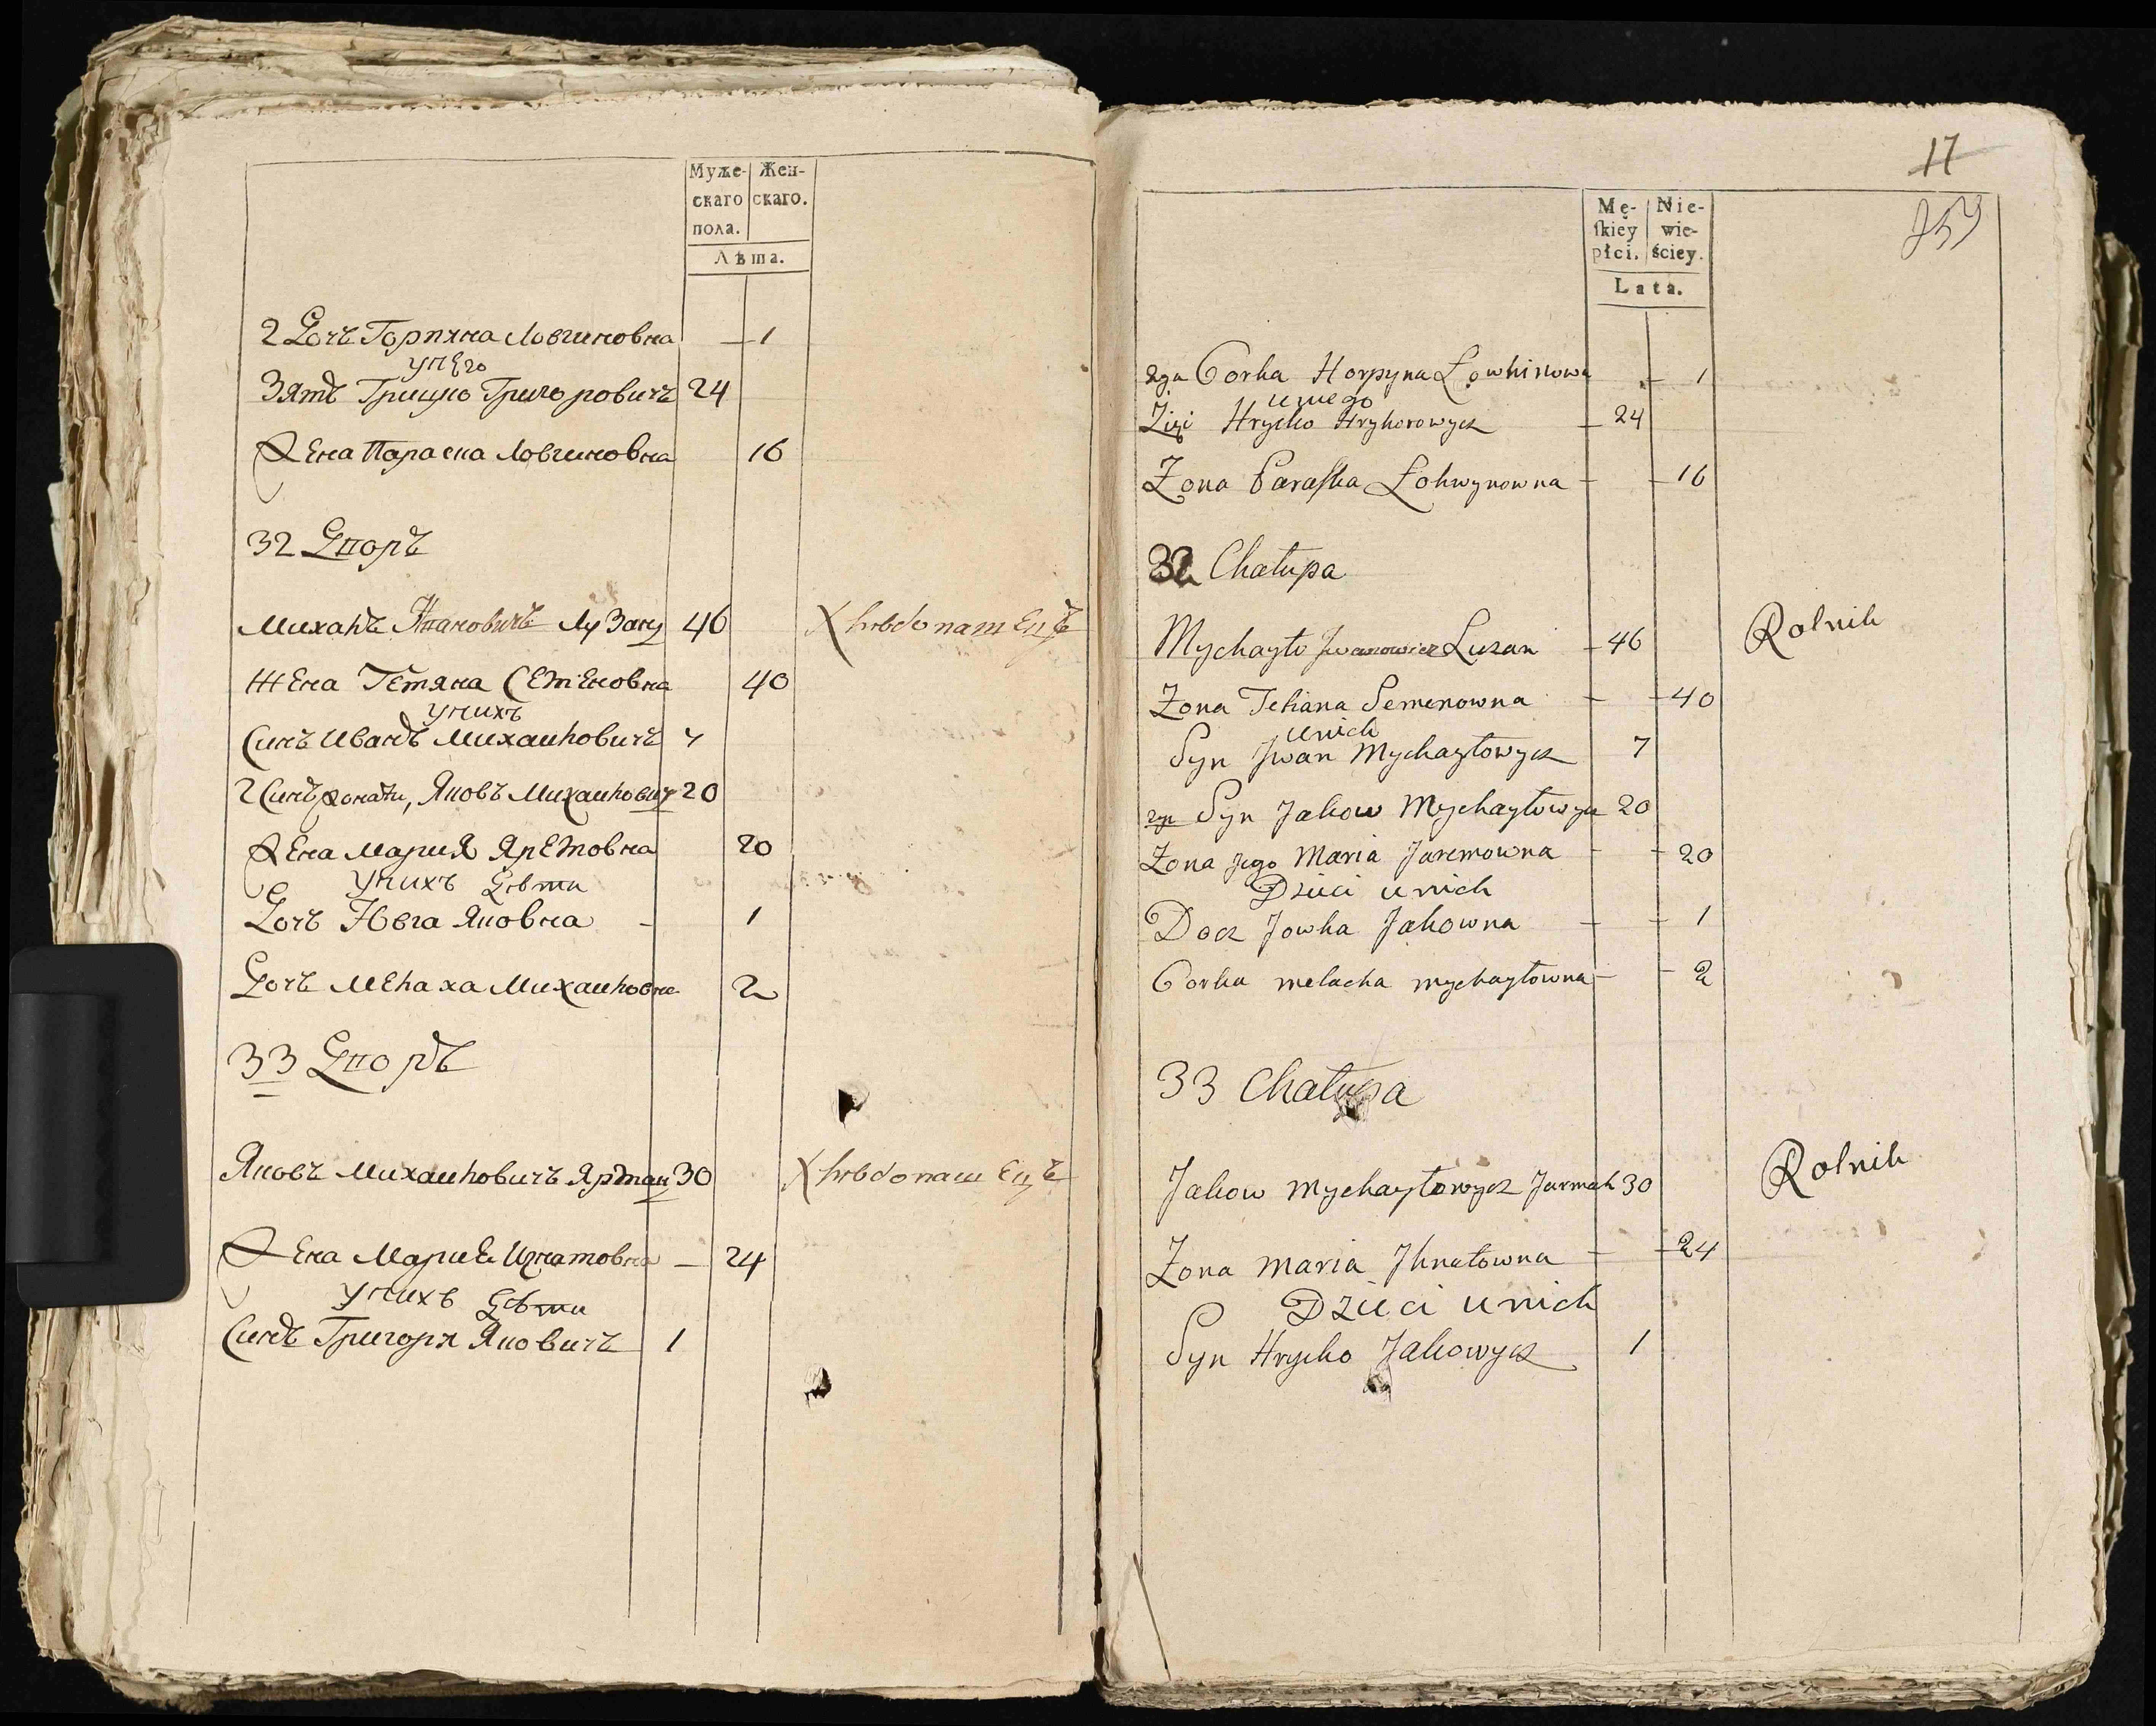 Муже- Жен-
скаго скаго.
пола.
Лѣта.
2 Дочъ Горпина Ловгиновна — 1
унего
Зятъ Грицко Григоровичъ 24
Жена Параска Ловгиновна 16
32 Дворъ
Михайлъ Ивановичъ Лузанъ 46 Хлѣбопашецъ
Жена Тетяна Семеновна 40
унихъ
Синъ Иванъ Михайловичъ 7
2 Синъ женатъ, Яковъ Михайловичъ 20
Жена Мария Яремовна 20
унихъ дѣти
Дочъ Ювга Яковна - 1
Дочъ Мелаха Михайловна 2
33 Дворъ
Яковъ Михайловичъ Ярмак 30 Хлѣбопашецъ
Жена Мария Игнатовна — 24
унихъ дѣти
Синъ Григорій Яковичъ 1
17
Mę- Nie-
ſkiey wie-
płci. ściey.
Lata.
2ga Corka Horpyna Łowhinowa — 1
uniego
Zięć Hrycko Hryhorowycz — 24
Zona Paraſka Łohwynowna — — 16
32 Chałupa
Mychayło Jwanowicz Luzan — 46 Rolnik
Zona Tetiana Semenowna — — 40
unich
Syn Jwan Mychayłowycz 7
2gi Syn Jakow Mychayłowycz 20
Zona Jego Maria Jaremowna — — 20
Dzieci unich
Docz Jowha Jakowna — — 1
Corka melacha mychayłowna — — 2
33 Chałupa
Jakow mychayłowycz Jarmak 30 Rolnik
Zona maria Jhnatowna — — 24
Dzieci unich
Syn Hrycko Jakowycz 1